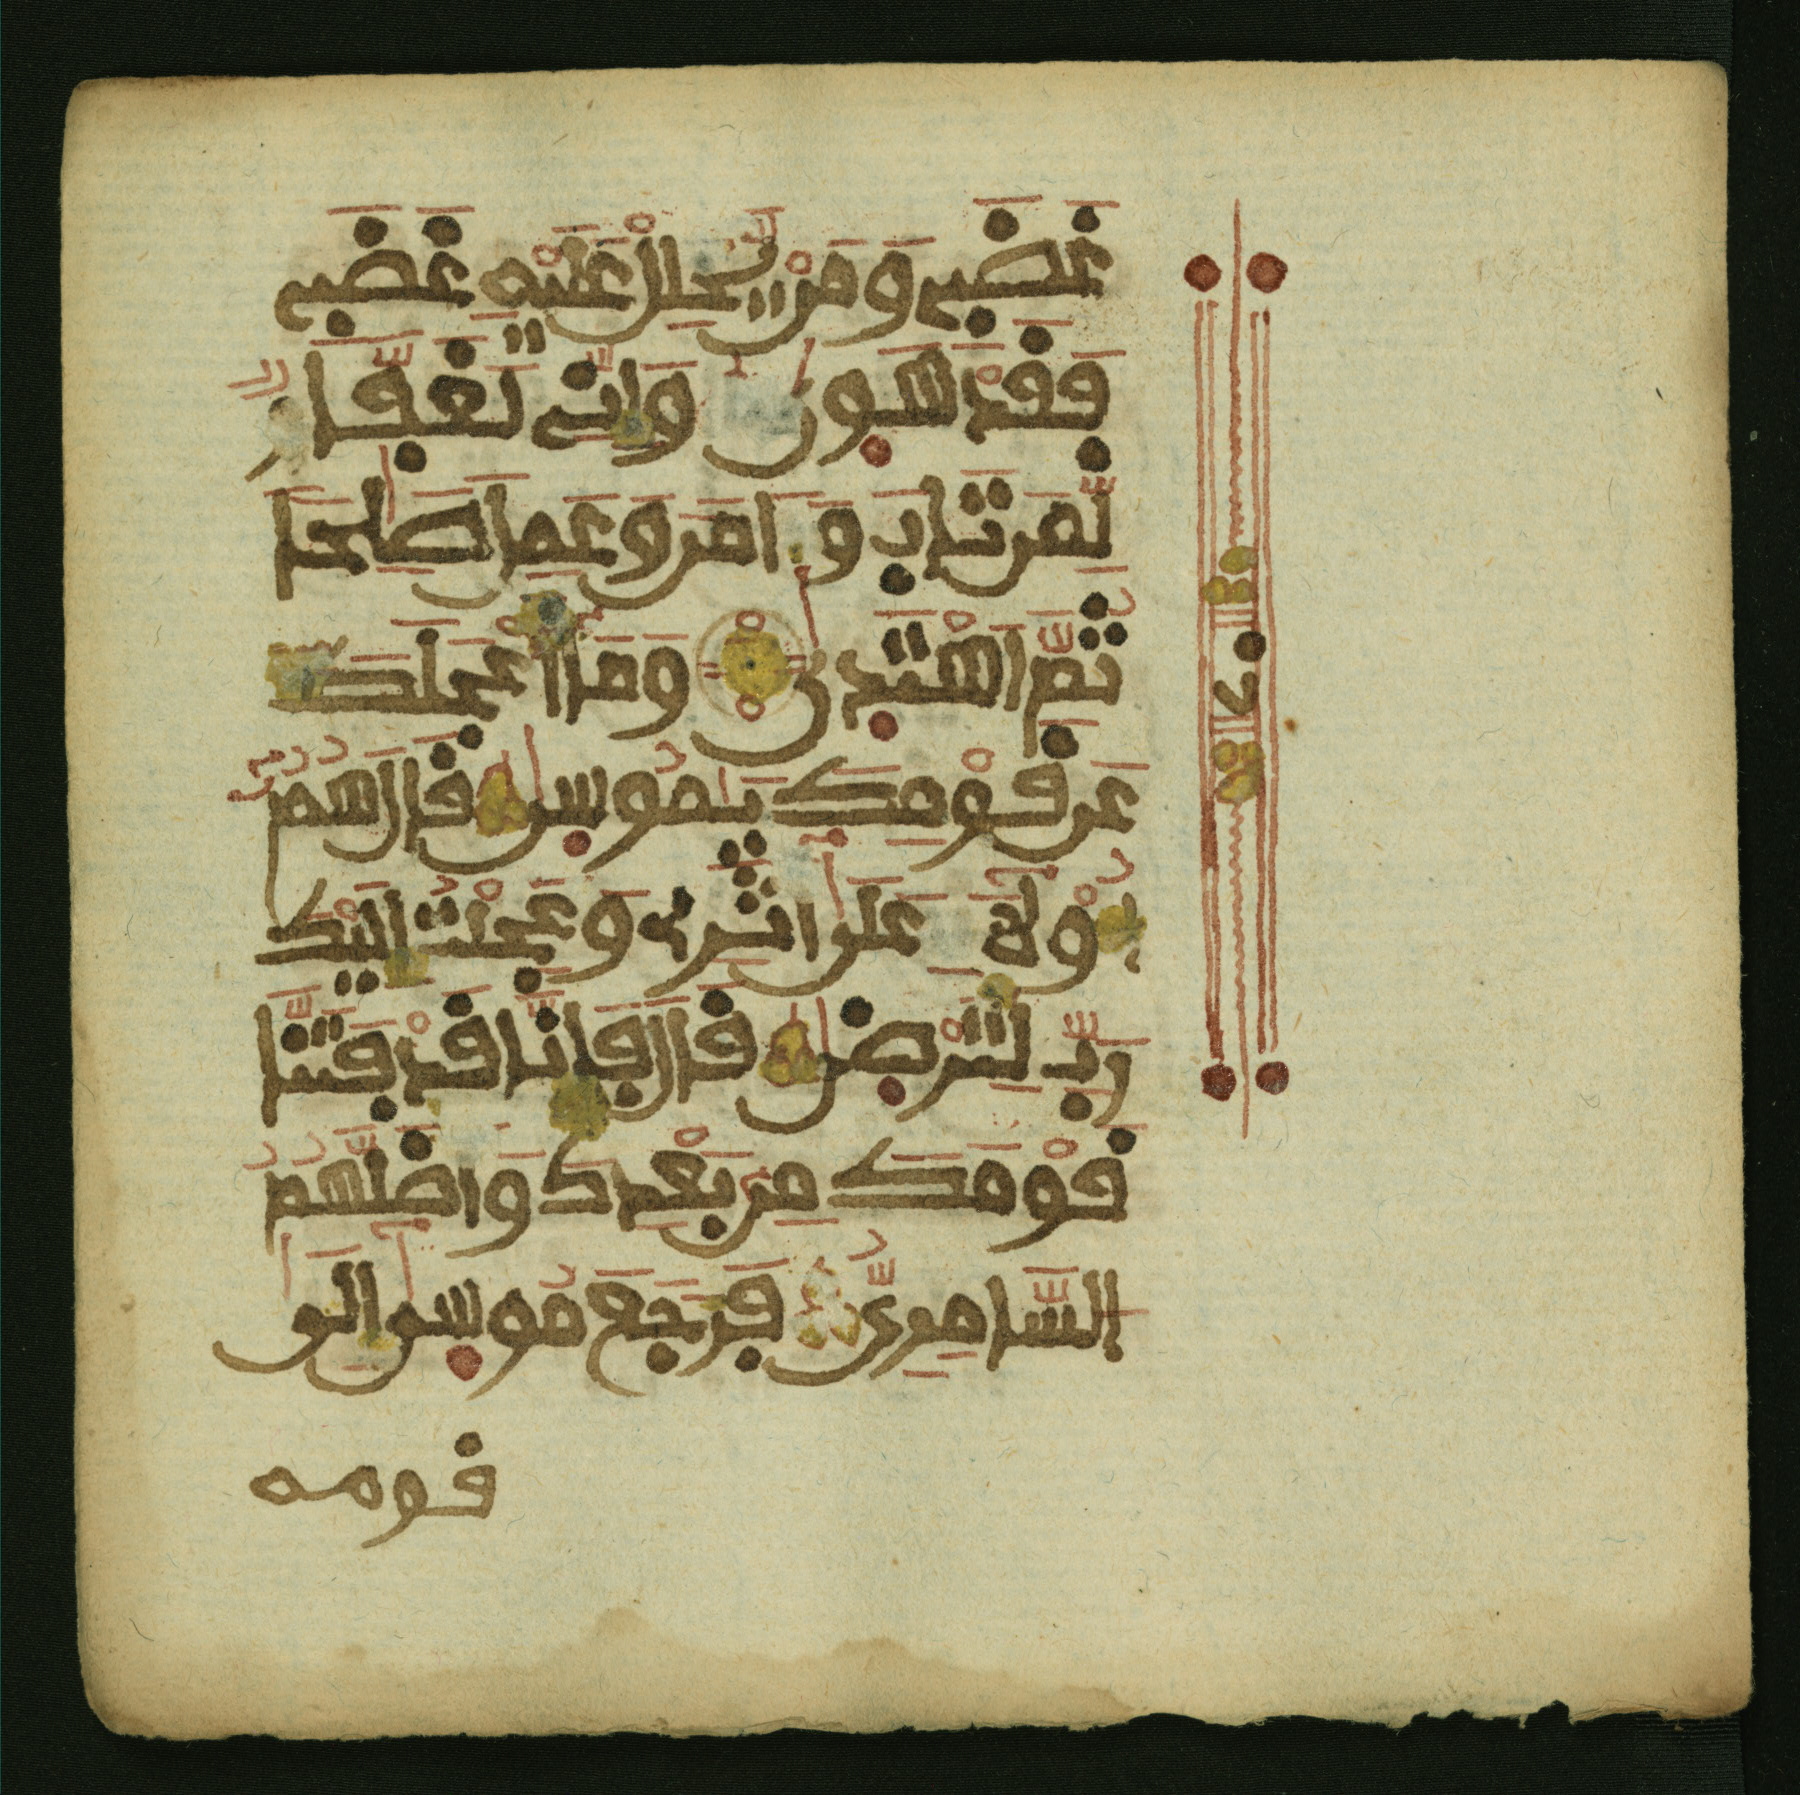 غَضَبِي وَمَن يَّحْلِلْ عَلَيْهِ غَضَبِي
فَقَدْ هَوىٰ وَإِنِّي لَغَفَّارٌ
لِّمَن تَابَ وَءَامَنَ وَعَمِلَ صَٰلِحاً
ثُمَّ اهْتَدىٰ وَمَا أَعْجَلَكَ
عَن قَوْمِكَ يَٰمُوسىٰ قَالَ هُمُ
أُوْلَاءِ عَلىٰ أَثَرِي وَعَجِلْتُ إِلَيْكَ
رَبِّ لِتَرْضىٰ قَالَ فَإِنَّا قَدْ فَتَنَّا
قَوْمَكَ مِن بَعْدِكَ وَأَضَلَّهُمُ
السَّامِرِيُّ فَرَجَعَ مُوسىٰ إِلىٰ
قومه